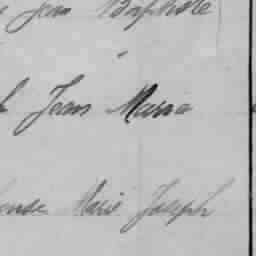 Jean Baptiste
"
Jean Maria
Marie Joseph